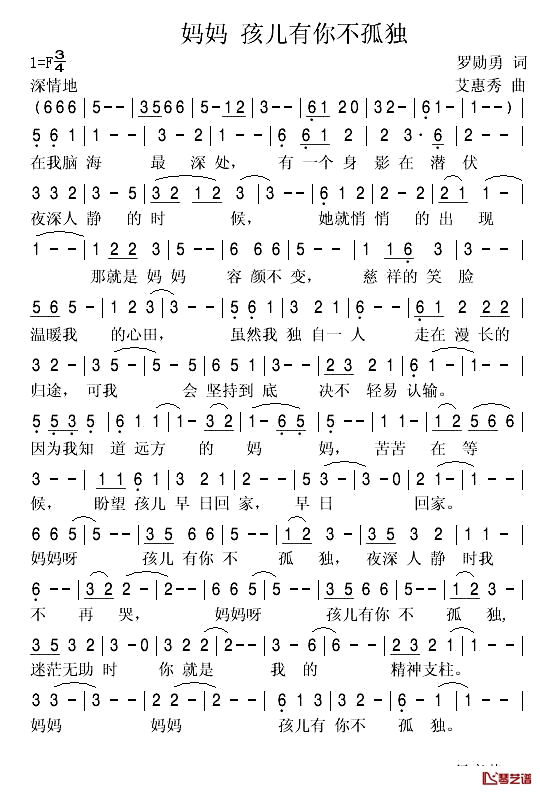 妈妈 孩儿有你不孤独
1=F 3/4
罗勋勇 词
深情地
艾惠秀 曲
(666|5--|3566|5-12|3--|6120|2-32|61-|1--)|
561|1--|3-5|5--|6 61|6-6|23·6|2--|
在我脑海 最 深处, 有一个身影在潜伏
332|3-5|32 12|3--|3-3|665|6-2|21 1|1--|
夜深人静 的时 候, 她就悄悄 的出 现
1--|122|3-5|6-6|2-2|2--|116|3-3|
那就是妈妈 容颜不变, 慈祥的笑脸
565|5-1|23|3--|561|3-2|2-6|61 2 22|
温暖我 的心田, 虽然我独 自一人 走在漫长的
332|2-5|5-5|651|3--|23 21|61-|1--|
归途,可我 会 坚持到底 决不 轻易认输。
5535|611|1-32|2--|1-65|5-5|1-2|12566|
因为我知 道远方 的 妈 妈, 苦苦 在 等
3--|1161|323|1-2|2--|53-|3-0|21-|1--|
候, 盼望孩儿早日回家, 早日 回家。
665|5--|3566|5-5|5--|123|323|211|
妈妈呀 孩儿有你不 孤 独,夜深人静时我
6--|32 2|2-2|2--|665|5--|3566|5-5|123|
不 再哭, 妈妈呀 孩儿有你不 孤 独,
3512|3-0|322|2--|5-6|6-6|2321|1--|
迷茫无助时 你就是 我 的 精神支柱。
33-|3--|22-|2--|613|32 2|6-5|1--|
妈妈 妈妈 孩儿有你不孤 独。
琴艺谱